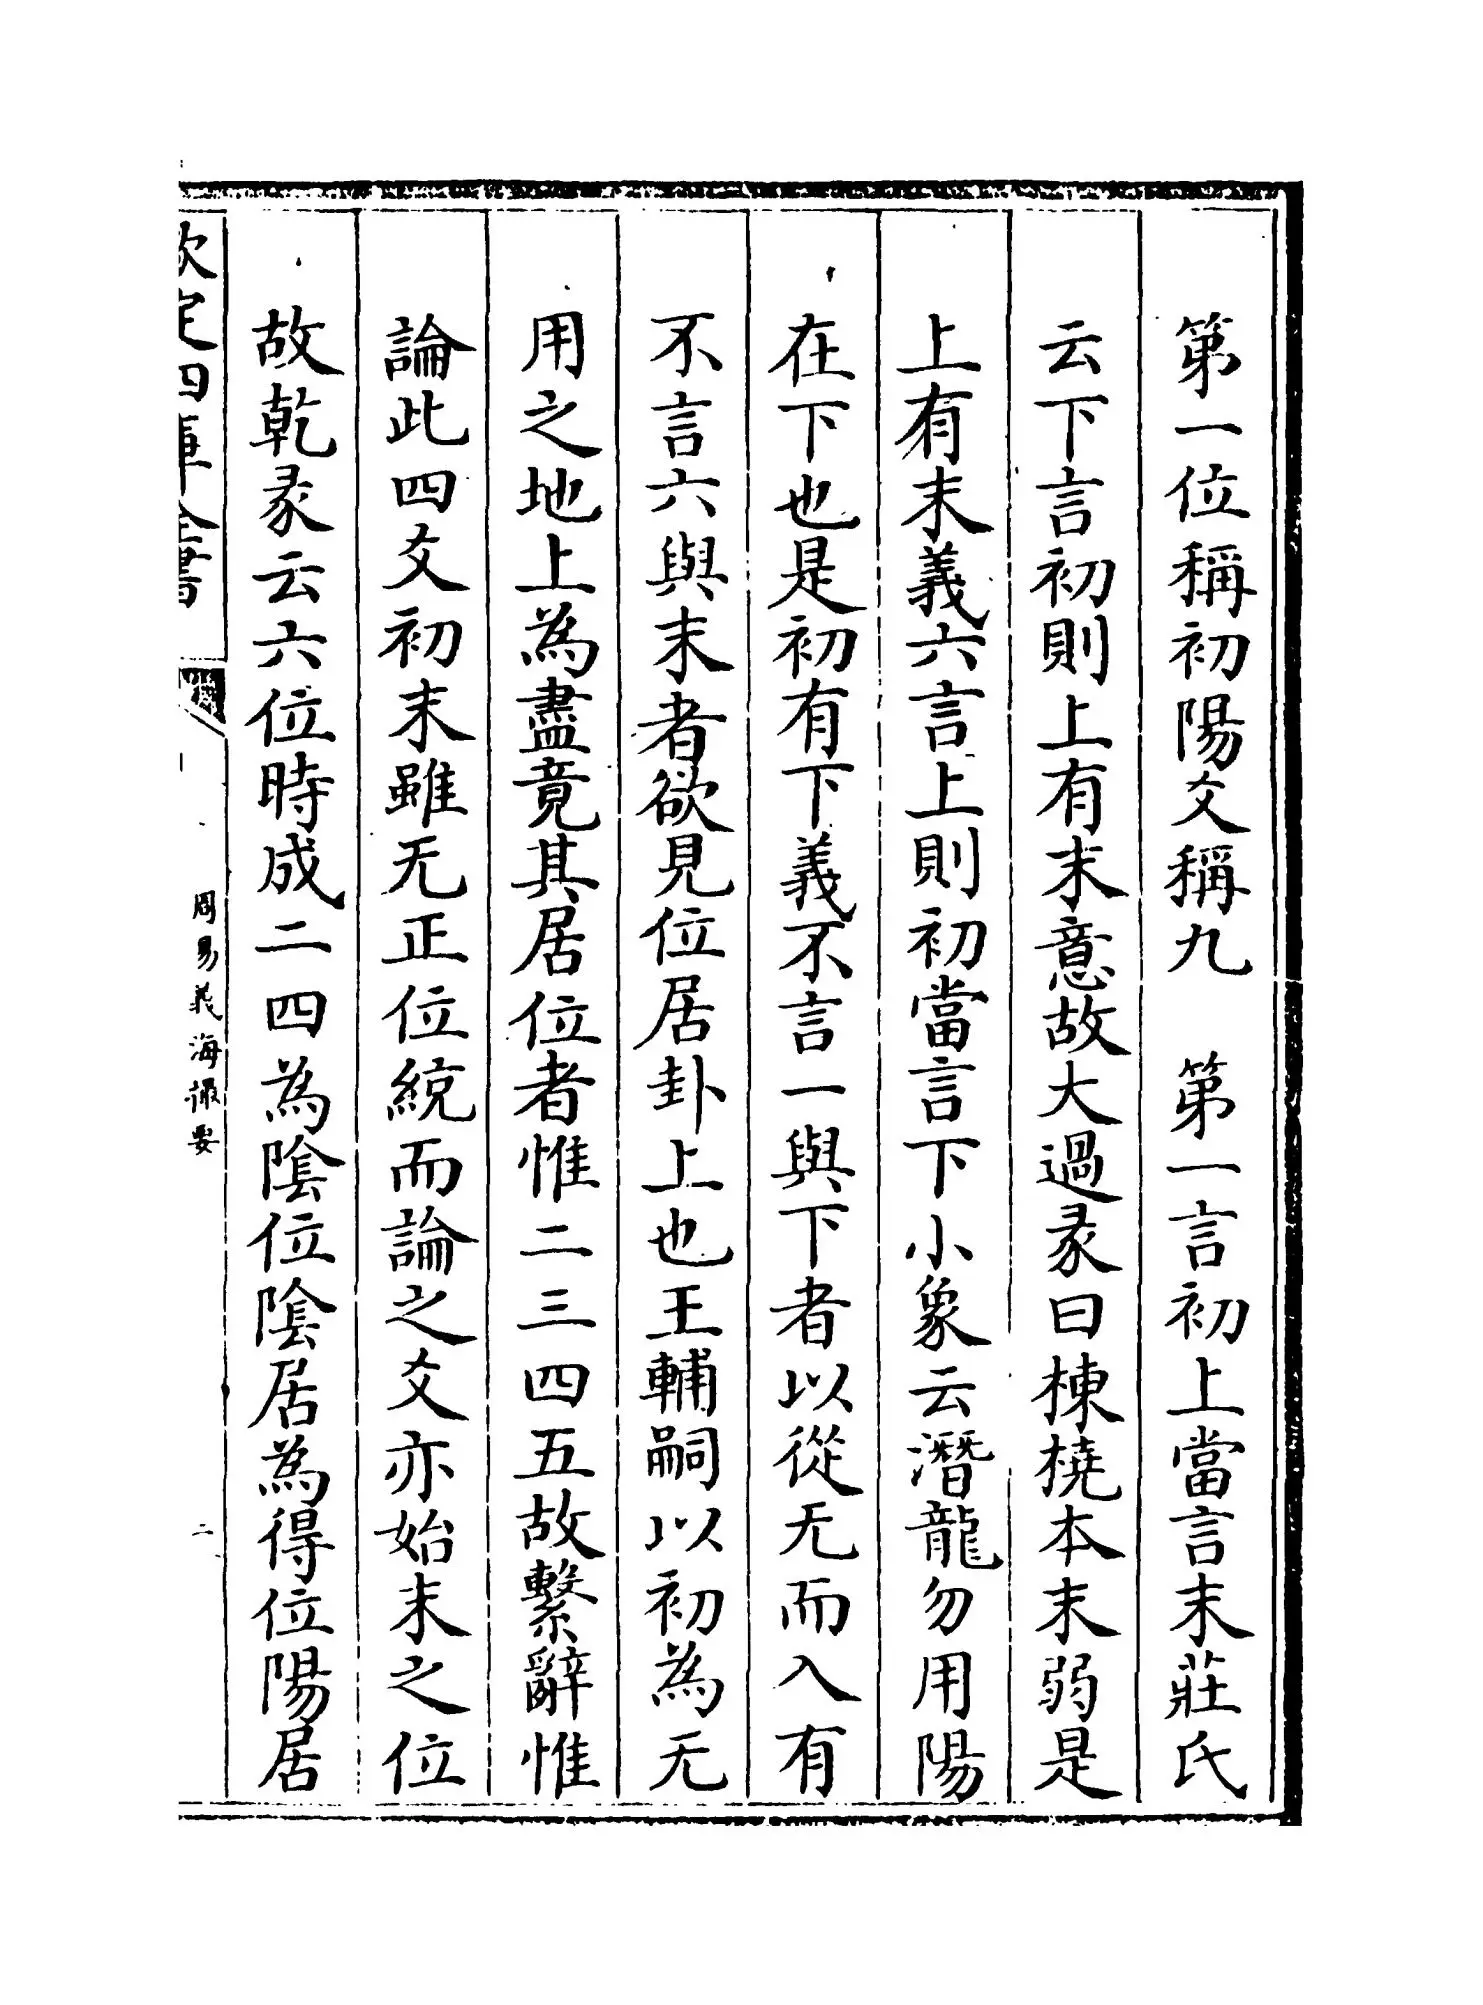 第一位稱初陽爻稱九　第一言初上當言末莊氏
云下言初則上有末意故大過彖曰棟橈本末弱是
上有末義六言上則初當言下小象云潛龍勿用陽
在下也是初有下義不言一與下者以從无而入有
不言六與末者欲見位居卦上也王輔嗣以初為无
用之地上為盡竟其居位者惟二三四五故繫辭惟
論此四爻初末雖无正位統而論之爻亦始末之位
故乾彖云六位時成二四為陰位陰居為得位陽居
欽定四庫全書
周易義海撮要
二